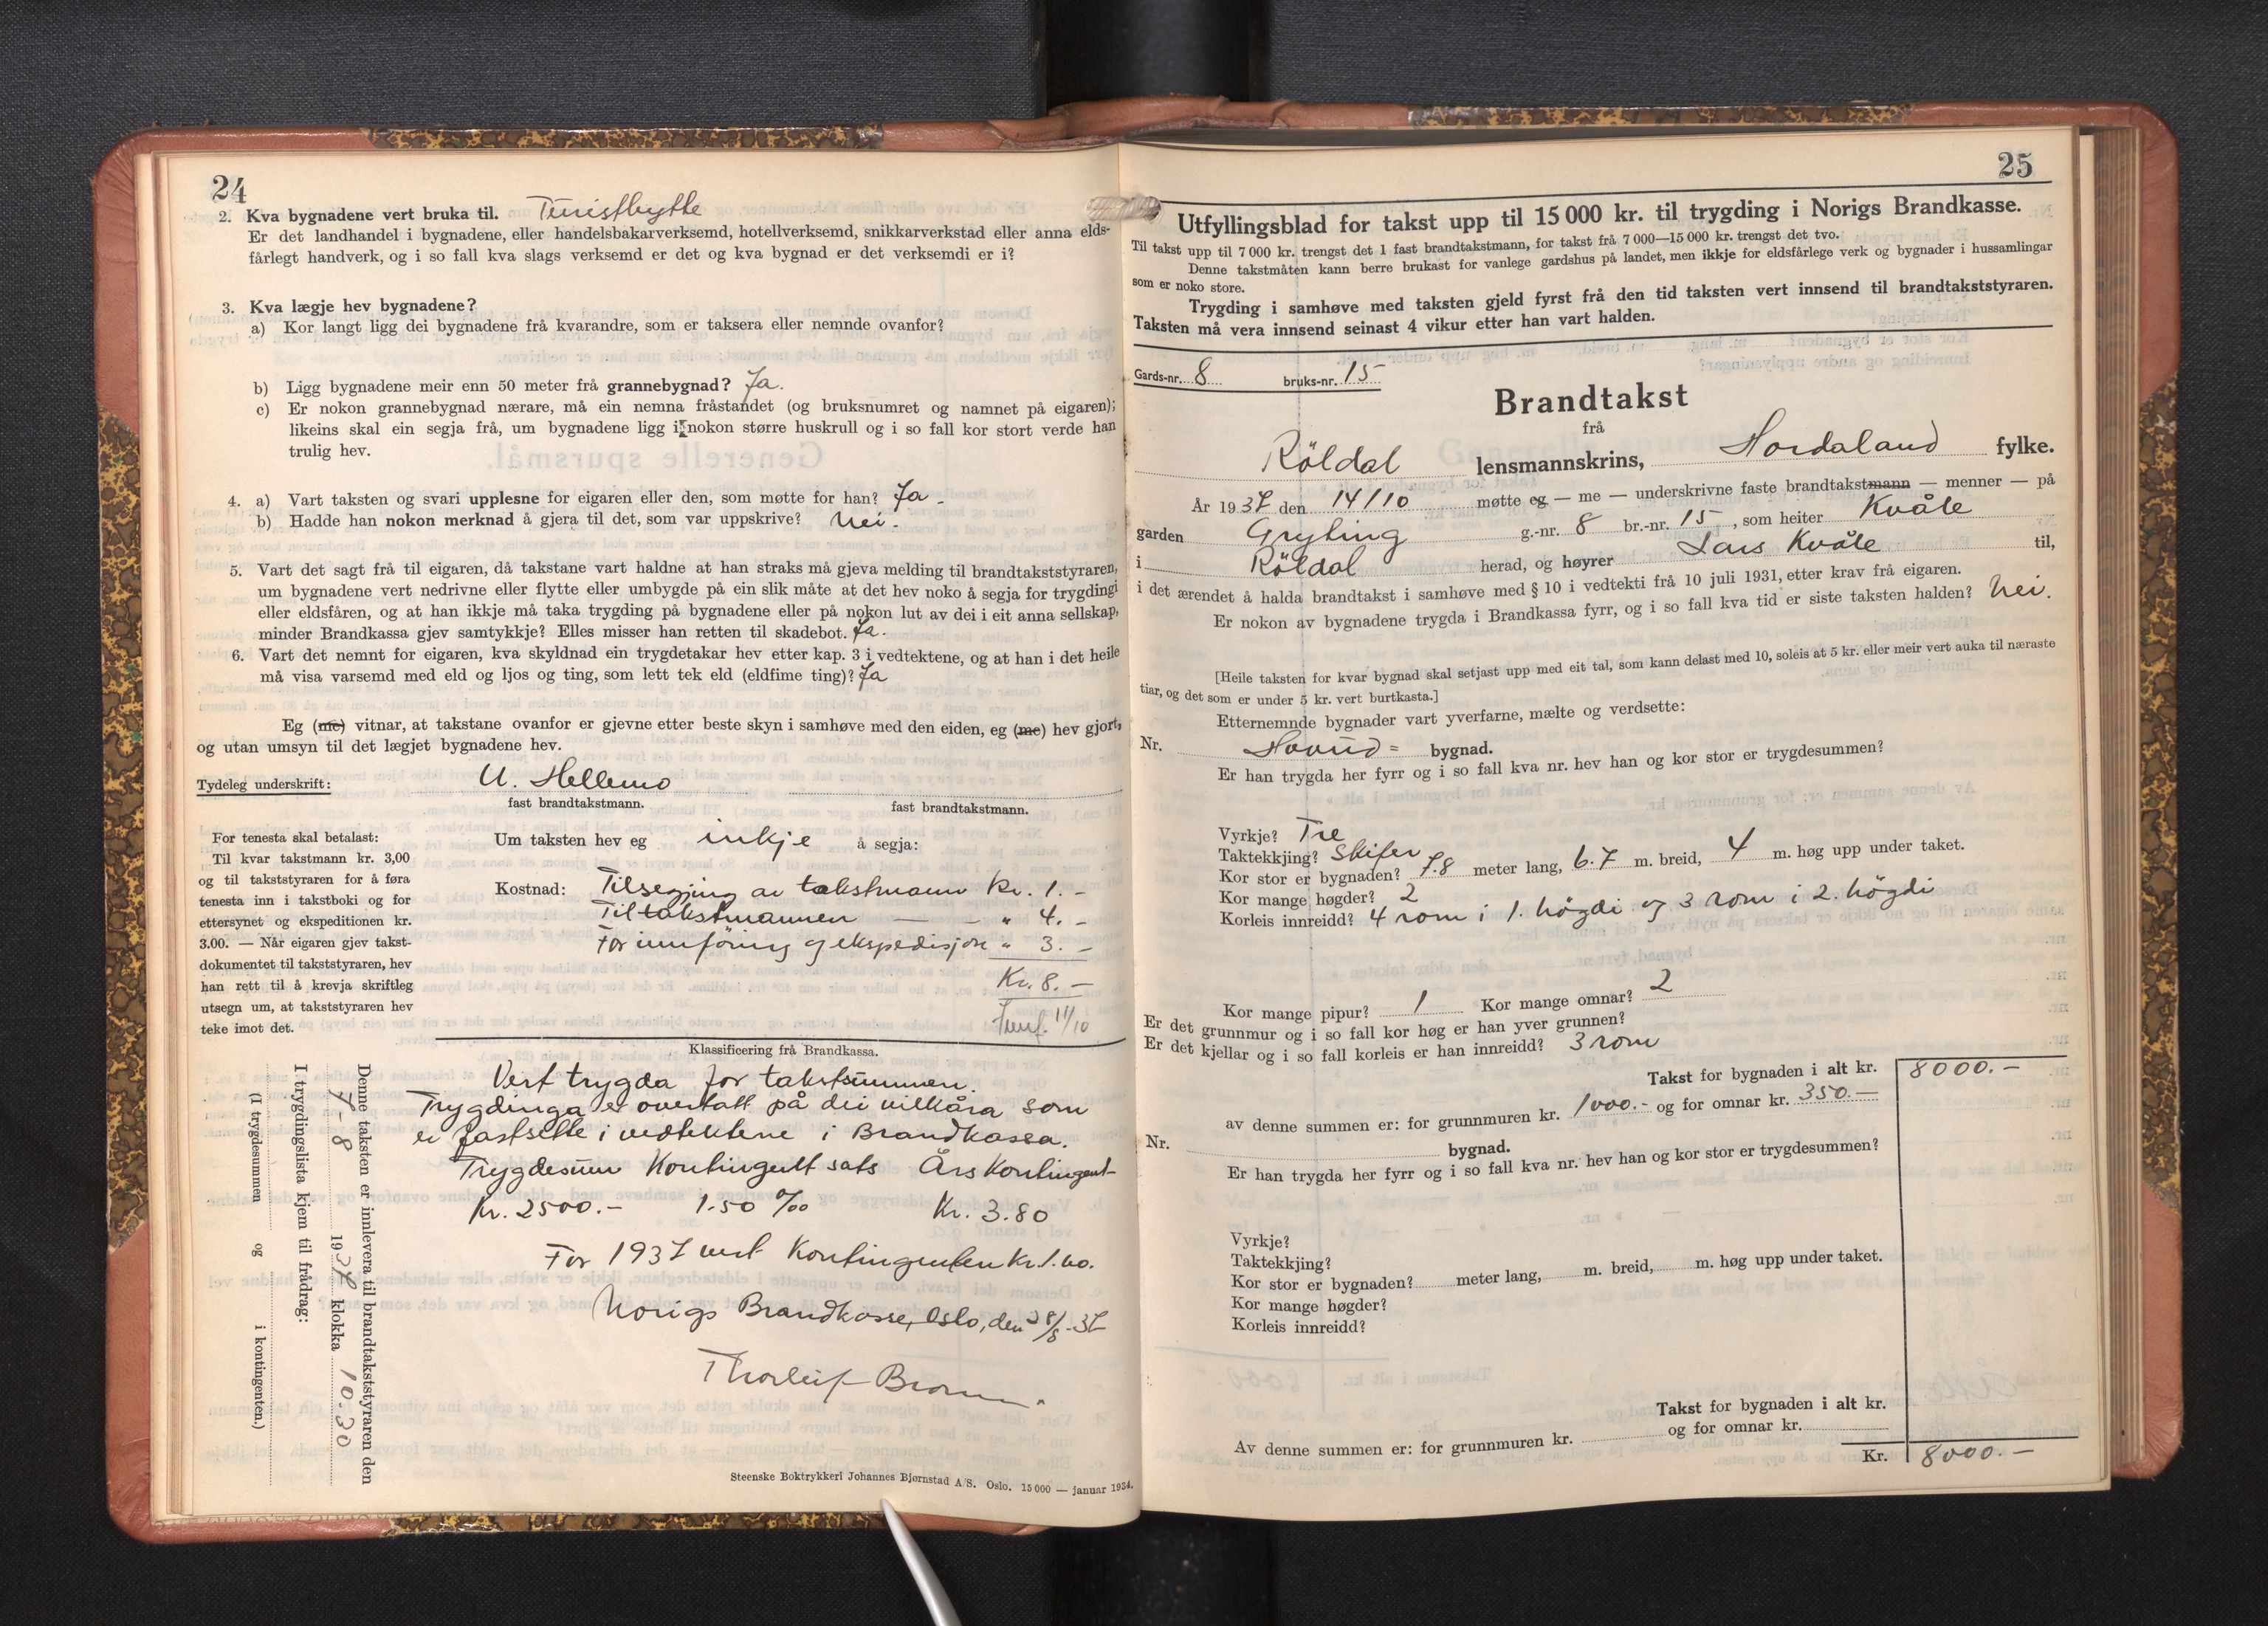 24
2. Kva bygnadene vert bruka til. Turisthytte
Er det landhandel i bygnadene, eller handelsbakarverksemd, hotellverksemd, snikkarverkstad eller anna elds-
fårlegt handverk, og i so fall kva slags verksemd er det og kva bygnad er det verksemdi er i?
3. Kva lægje hev bygnadene?
a) Kor langt ligg dei bygnadene frå kvarandre, som er taksera eller nemnde ovanfor?
b) Ligg bygnadene meir enn 50 meter frå grannebygnad? Ja.
c) Er nokon grannebygnad nærare, må ein nemna fråstandet (og bruksnumret og namnet på eigaren);
likeins skal ein segja frå, um bygnadene ligg i nokon større huskrull og i so fall kor stort verde han
trulig hev.
4. a) Vart taksten og svari upplesne for eigaren eller den, som møtte for han? Ja -
b) Hadde han nokon merknad å gjera til det, som var uppskrive? Nei.
5. Vart det sagt frå til eigaren, då takstane vart haldne at han straks må gjeva melding til brandtakststyraren,
um bygnadene vert nedrivne eller flytte eller umbygde på ein slik måte at det hev noko å segja for trygdingi
eller eldsfåren, og at han ikkje må taka trygding på bygnadene eller på nokon lut av dei i eit anna sellskap,
minder Brandkassa gjev samtykkje? Elles misser han retten til skadebot. Ja.
6. Vart det nemnt for eigaren, kva skyldnad ein trygdetakar hev etter kap. 3 i vedtektene, og at han i det heile
må visa varsemd med eld og ljos og ting, som lett tek eld (eldfime ting)? Ja
Eg (me) vitnar, at takstane ovanfor er gjevne etter beste skyn i samhøve med den eiden, eg (me) hev gjort,
og utan umsyn til det lægjet bygnadene hev.
Tydeleg underskrift: U. Hellemo
fast brandtakstmann. fast brandtakstmann.
For tenesta skal betalast:
Til kvar takstmann kr. 3,00
og til takststyraren for å føra
tenesta inn i takstboki og for
ettersynet og ekspeditionen kr.
3.00. — Når eigaren gjev takst-
dokumentet til takststyraren, hev
han rett til å krevja skriftleg
utsegn um, at takststyraren hev
teke imot det.
Um taksten hev eg inkje å segja:
Kostnad: Tilsegjing av takstmann Kr. 1. -
Til takstmannen — - " 4. -
For innføring og ekspedisjon " 3. -
Kr. 8. -
11/10
Klassificering frå Brandkassa.
Vert trygda for takstsummen.
Trygdinga er overtatt på dei vilkåra som
er fastsette i vedtektene i Brandkassa.
Trygdesum Kontingent sats Års Kontingent
Kr. 2500.- 1.50 ‰ Kr. 3.80
For 1937 vert Kontingenten Kr. 1.60.
Norigs Brandkasse, Oslo, den 28/8-37
Thorleif
Denne taksten er innlevera til brandtakststyraren den
7-8 1937 klokka 10.30
I trygdingslista kjem til frådrag:
(I trygdesummen og i kontingenten.)
Steenske Boktrykkeri Johannes Bjørnstad A/S. Oslo. 15 000 — januar 1934.
25
Utfyllingsblad for takst upp til 15 000 kr. til trygding i Norigs Brandkasse.
Til takst upp til 7 000 kr. trengst det 1 fast brandtakstmann, for takst frå 7 000—15 000 kr. trengst det tvo.
Denne takstmåten kann berre brukast for vanlege gardshus på landet, men ikkje for eldsfårlege verk og bygnader i hussamlingar
som er noko store.
Trygding i samhøve med taksten gjeld fyrst frå den tid taksten vert innsend til brandtakststyraren.
Taksten må vera innsend seinast 4 vikur etter han vart halden.
Gards-nr. 8 bruks-nr. 15
Brandtakst
frå
Röldal lensmannskrins, Hordaland fylke.
År 1937 den 14/10 møtte eg — me — underskrivne faste brandtakstmann — menner — på
garden Gryting g.-nr. 8 br.-nr. 15, som heiter Kvåle
i Röldal herad, og høyrer Lars Kvåle til,
i det ærendet å halda brandtakst i samhøve med § 10 i vedtekti frå 10 juli 1931, etter krav frå eigaren.
Er nokon av bygnadene trygda i Brandkassa fyrr, og i so fall kva tid er siste taksten halden? Nei.
[Heile taksten for kvar bygnad skal setjast upp med eit tal, som kann delast med 10, soleis at 5 kr. eller meir vert auka til næraste
tiar, og det som er under 5 kr. vert burtkasta.]
Etternemnde bygnader vart yverfarne, mælte og verdsette:
Nr. Hovud= bygnad.
Er han trygda her fyrr og i so fall kva nr. hev han og kor stor er trygdesummen?
Vyrkje? Tre
Taktekkjing? Skifer
Kor stor er bygnaden? 7.8 meter lang, 6.7 m. breid, 4 m. høg upp under taket.
Kor mange høgder? 2
Korleis innreidd? 4 rom i 1. högdi og 3 rom i 2. högdi
Kor mange pipur? 1 Kor mange omnar? 2
Er det grunnmur og i so fall kor høg er han yver grunnen?
Er det kjellar og i so fall korleis er han innreidd? 3 rom
Takst for bygnaden i alt kr. 8000.-
av denne summen er: for grunnmuren kr. 1000.- og for omnar kr. 350.-
Nr. bygnad.
Er han trygda her fyrr og i so fall kva nr. hev han og kor stor er trygdesummen?
Vyrkje?
Taktekkjing?
Kor stor er bygnaden? meter lang, m. breid, m. høg upp under taket.
Kor mange høgder?
Korleis innreidd?
Takst for bygnaden i alt kr.
Av denne summen er: for grunnmuren kr. og for omnar kr.
Kr. 8000.-